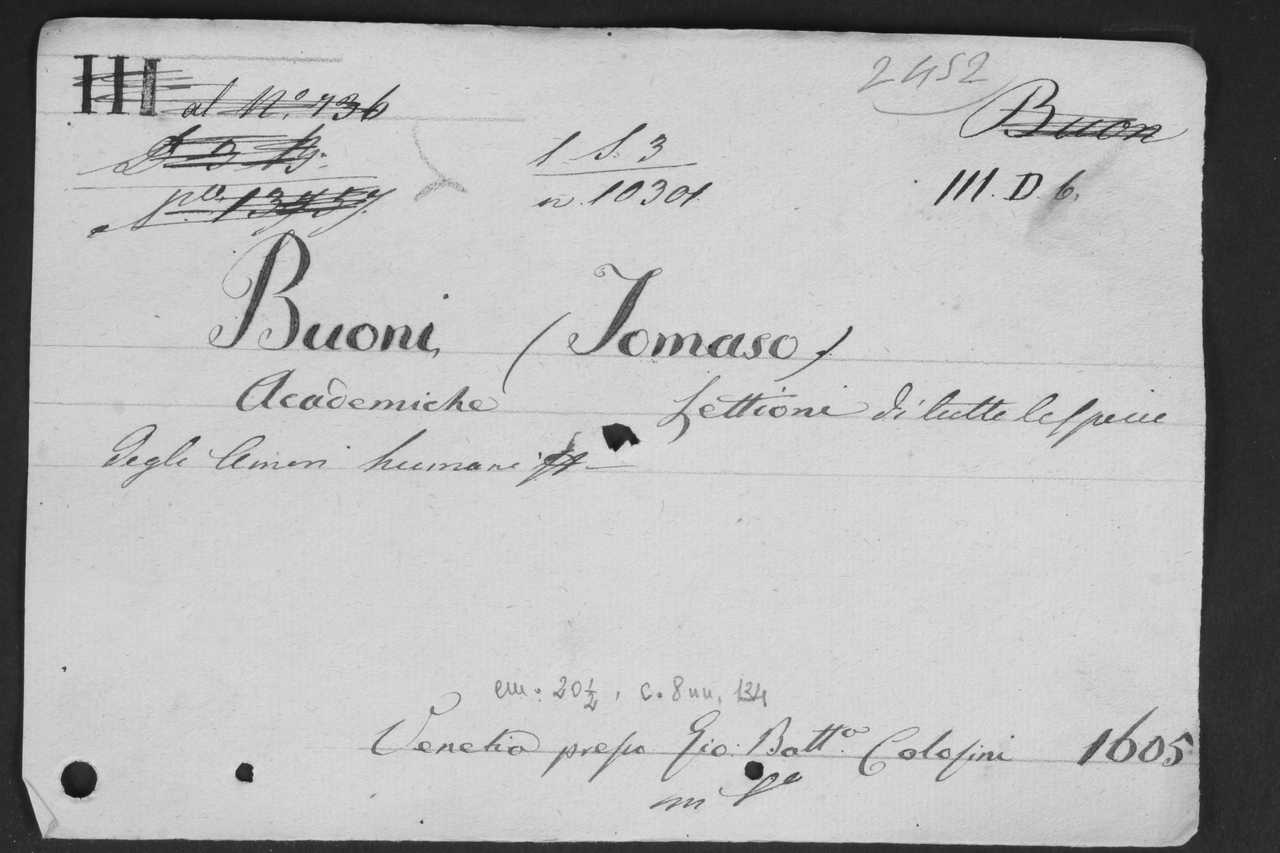 III al N.º 736
2452
Buon
1 S. 3
n. 10301
III. D. 6.
Buoni, (Tomaso)
Academiche Lettioni di tutte le specie
degli Amori humani
cm. 20½, c. 8 nn, 134
Venetia presso Gio: Batt.ª Colosini 1605
in 4º